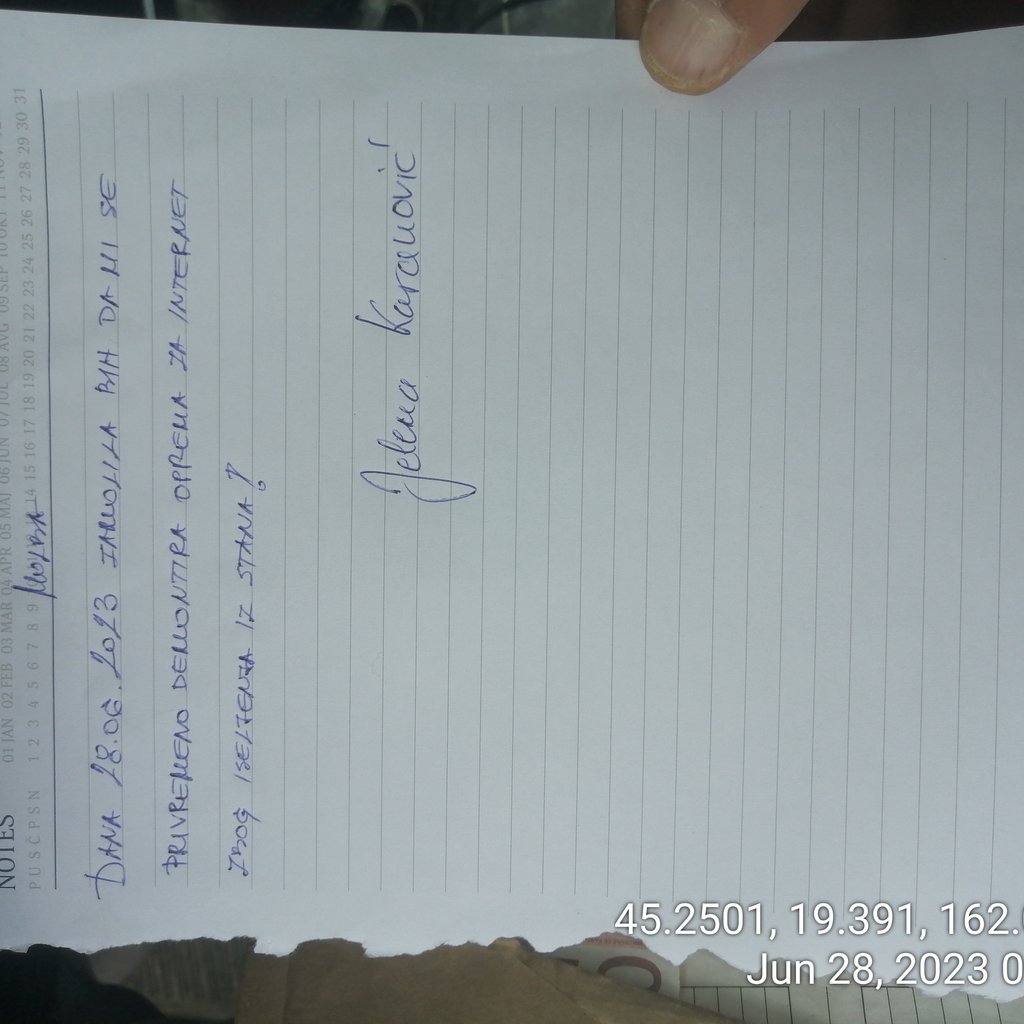 NOTES
01 JAN 02 FEB 03 MAR 04 APR 05 MAJ 06 JUN 07 JUL 08 AVG 09 SEP 10 OKT 11 NOV
P U S Č P S N 1 2 3 4 5 6 7 8 9 14 15 16 17 18 19 20 21 22 23 24 25 26 27 28 29 30 31
MOLBA
DANA 28.06.2023 ZAMOLILA BIH DA MI SE
PRIVREMENO DEMONTIRA OPREMA ZA INTERNET
ZBOG ISELJENJA IZ STANA!
Jelena Karanović
45.2501, 19.391, 162.
Jun 28, 2023 0